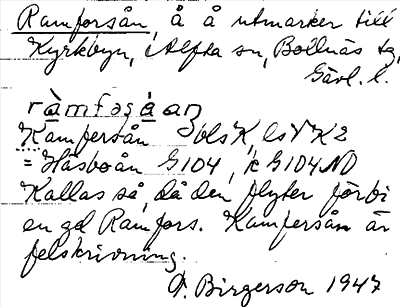 Ramforsån, å å utmarker till
Kyrkbyn, i Alfta sn, Bollnäs tg,
Gävl. l.
ràmfəṣåan
Kamfersån GSK, lsVK2
= Håsboån G104, K G104NO
Kallas så, då den flyter förbi
en gd Ramfors. Kamfersån är
felskrivning.
G. Birgerson 1947